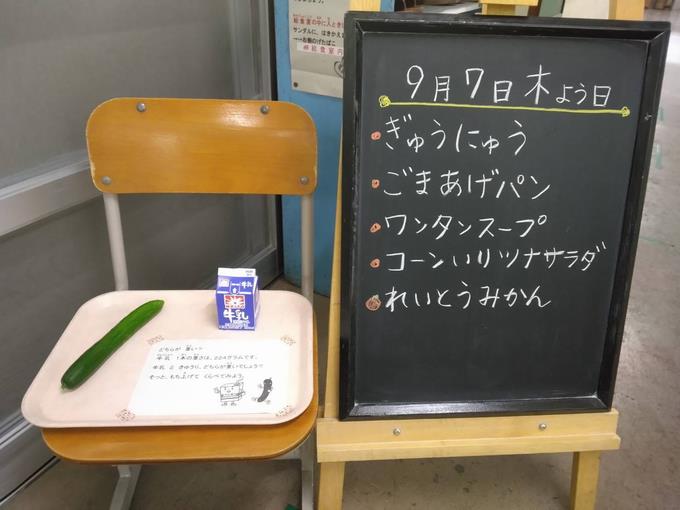 給食室の中に入るとき
サンダルに、はきかえ
給食室内
9月7日木よう日
ぎゅうにゅう
ごまあげパン
ワンタンスープ
コーンいりツナサラダ
れいとうみかん
牛乳
どちらが 重い?
牛乳 1本の重さは、224グラムです。
牛乳 と きゅうり、どちらが重いでしょう?
そっと、もち上げて くらべてみよう。